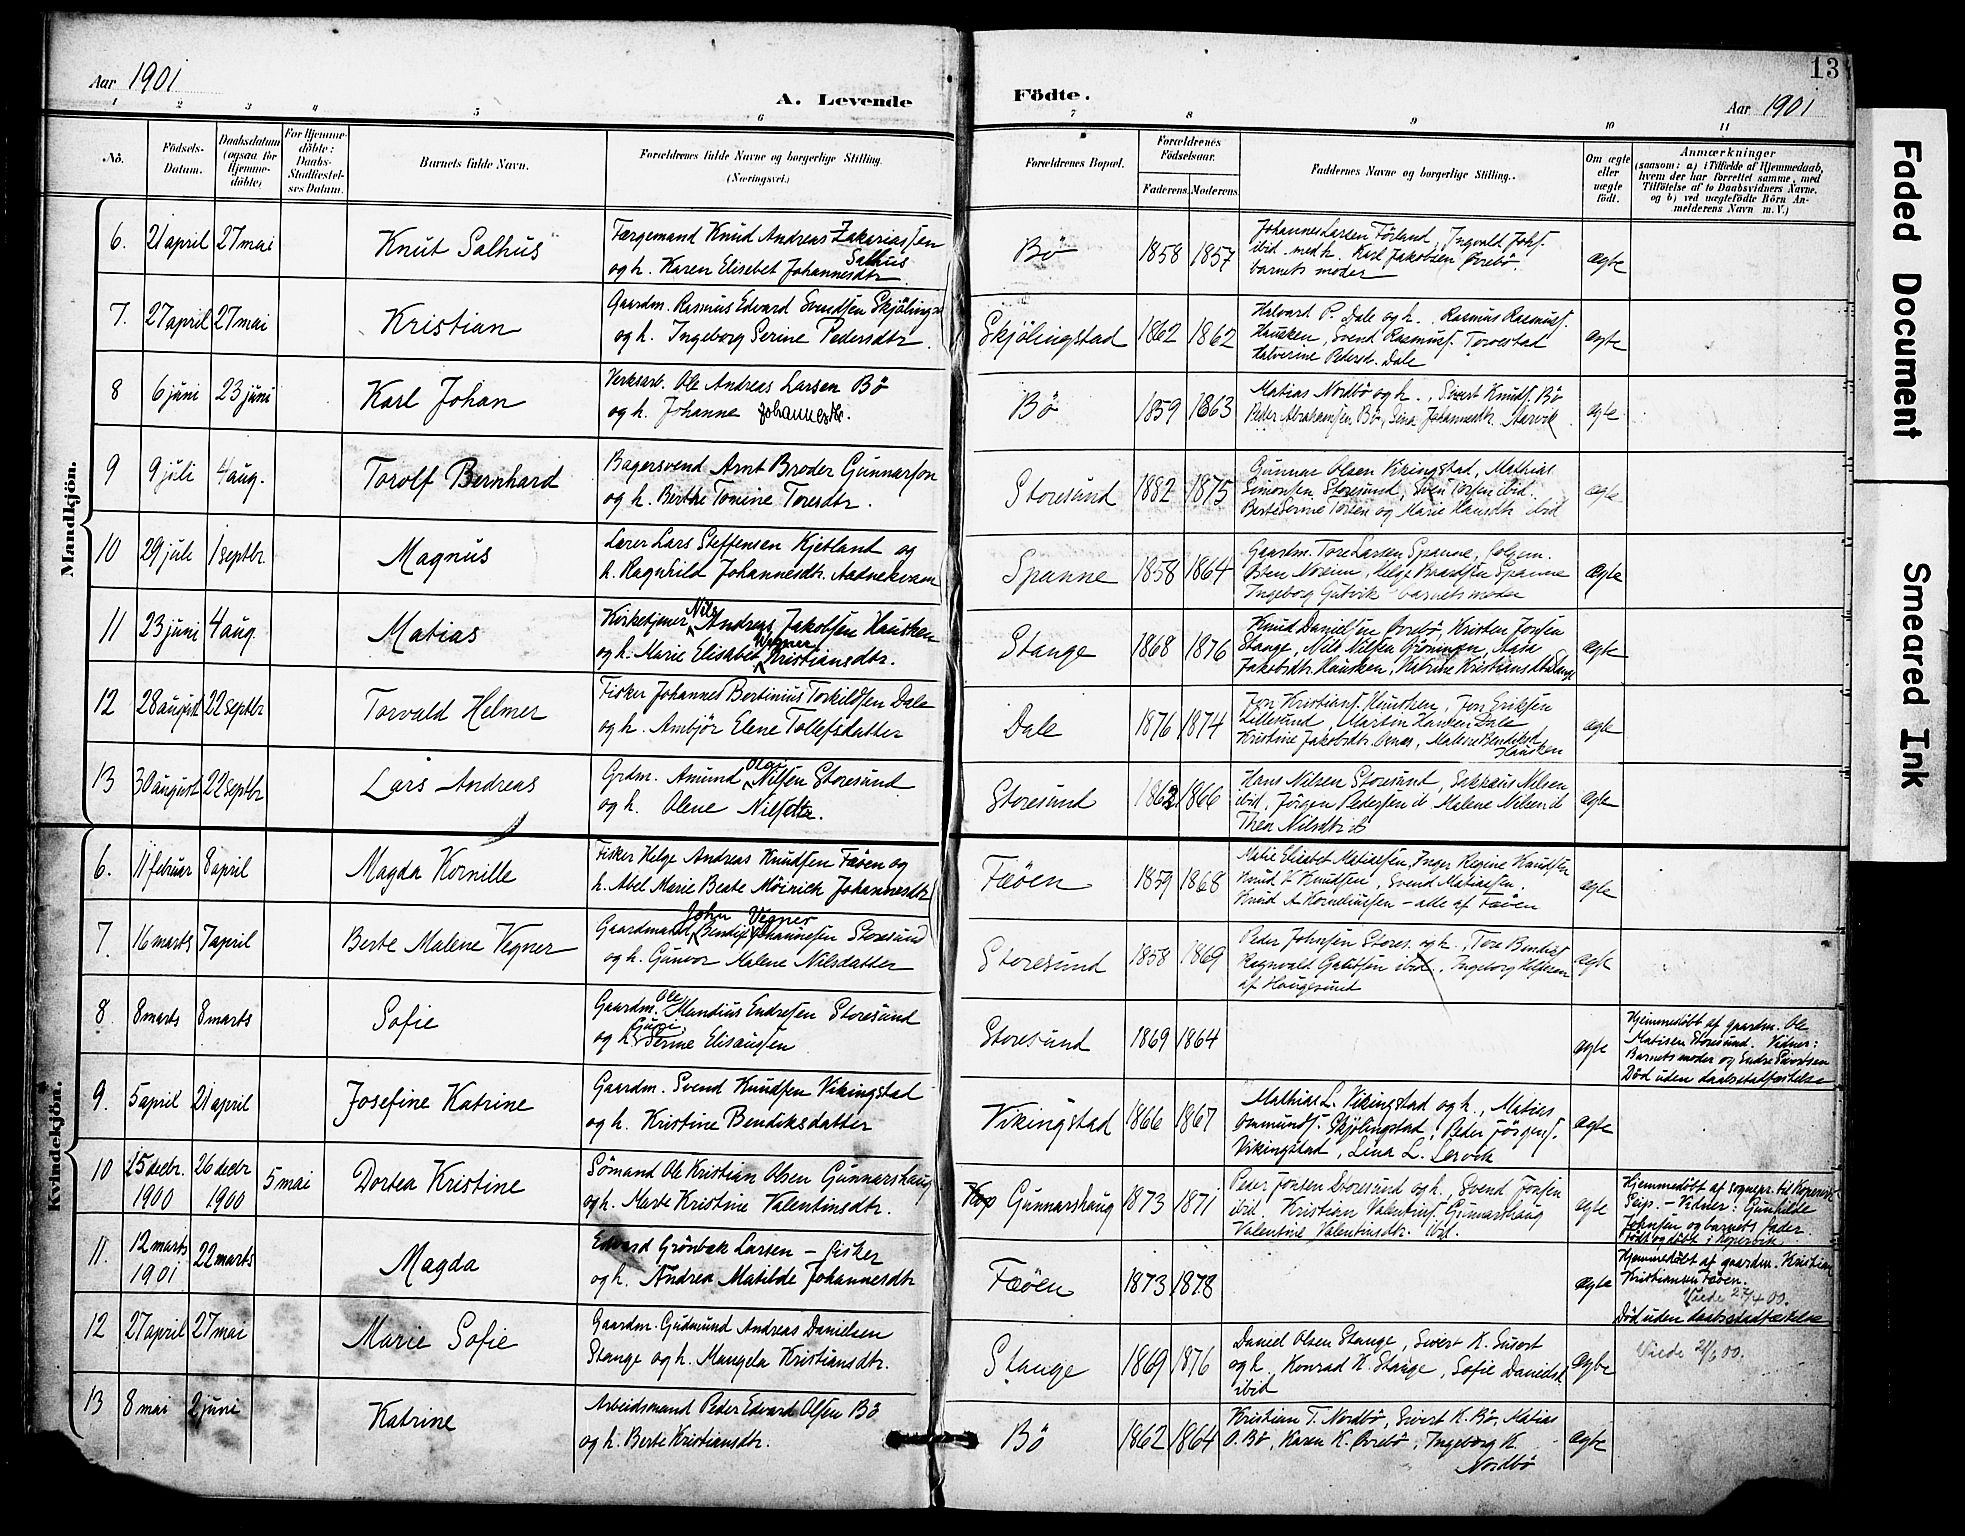 Aar 1901
A. Levende
Födte.
13
Aar 1901
1 2 3 4 5 6 7 8 9 10 11
No.
Födsels-
Datum.
Daabsdatum
(ogsaa for
Hjemme-
döbte)
For Hjemme-
döbte:
Daabs-
Stadfæstel-
ses Datum.
Barnets fulde Navn.
Forældrenes fulde Navne og borgerlige Stilling.
(Næringsvei.)
Forældrenes Bopæl.
Forældrenes
Födselsaar.
Faderens.
Moderens.
Faddernes Navne og borgerlige Stilling.
Om ægte
eller
uægte
födt.
Anmærkninger
(saasom: a) i Tilfælde af Hjemmedaab,
hvem der har forrettet samme, med
Tilföielse af to Daabsvidners Navne,
og b) ved uægtefödte Börn An-
melderens Navn m. V.)
Mandkjön.
6. 21 april 27 mai Knut Salhus
Færgemand Knud Andreas Zakariassen
Salhus
og h. Karen Elisebet Johannesdtr
Bö 1858 1857
Johannes Larsen Förland, Ingvald Johs.
ibid med h. Karl Jakobsen Ovrebö.
barnets moder
ægte
7. 27 april 27 mai Kristian
Gaardm. Rasmus Edvard Svendsen Skjölings
og h. Ingeborg Serine Pedersdtr.
Skjölingstad 1862 1862
Halvard P. Dale og h. Rasmus Rasmus.
Hausken, Svend Rasmus. Torvestad
Halverine Pedersd. Dale
ægte
8 6 juni 23 juni Karl Johan
Verksarb. Ole Andreas Larsen Bö
og h. Johanne Johannesdtr.
Bö 1859 1863
Matias Nordbö og h., Sivert Knuds. Bö
Peder Abrahamsen Bö, Lina Johannesdtr. Aarvik
ægte
9 9 juli 4 aug. Torolf Bernhard
Bagersvend Arnt Breder Gunnarson
og h. Berthe Tomine Toresdtr.
Storesund 1882 1875
Gunnar Olsen Vikingstad, Mathias
Simonsen Storesund, Sven Torsen ibid.
Berte Serine Torsen og Marie Hansdtr ibid
ægte
10 29 juli 1 septbr. Magnus
Lærer Lars Steffensen Kjetland og
h. Ragnhild Johannesdtr. Aadnekvam
Spanne 1858 1864
Gaardm. Tore Larsen Spanne,
Osten Noreim, Helge Baardsen Spanne
Ingeborg Gutvik barnets moder
ægte
11 23 juni 4 aug. Matias
Kirketjener Nils Andreas Jakobsen Hausken
og h. Marie Elisabet Vegner Kristiansdtr.
Stange 1868 1876
Knud Danielsen Ovrebö, Kristen Jonsen
Stange, Nils Nilsen Gröningen, Aasa
Jakobsdtr. Hausken, Katrine Kristiansdtr Stange
ægte
12 28 august 22 septbr Torvald Helmer
Fisker Johannes Bertinius Torkildsen Dale
og h. Ambjör Elene Tollefsdatter
Dale 1876 1874
Jon Kristians. Hausken, Jon Eriksen
Lillesund, Martin Hansen Dale
Kristine Jakobsdtr Osnes, Malene Bendiksd.
Hausken
ægte
13 30 august 22 septbr Lars Andreas
Grdm. Amund Olai Nilsen Storesund
og h. Olene Nilsdtr.
Storesund 1862 1866
Hans Nilsen Storesund, Sakkæus Nilsen
ibid, Jörgen Pedersen ib Malene Nilsen ib
Thea Nilsdtr ib
ægte
Kvindekjön.
6. 11 februar 8 april Magda Kornille
Fisker Helge Andreas Knudsen Fæöen og
h. Abel Marie Beate Möirich Johannesdtr
Fæöen 1859 1868
Matie Elisabet Matiassen, Inger Regine Knudsen
Knud K Knudsen, Svend Matiassen.
Knud A Korneliussen – alle af Fæöen
ægte
7. 16 marts 7 april Berte Malene Vegner
Gaardmand John Bendix Vegner Johannesen Storesund
og h. Gunvor Malene Nilsdatter
Storesund 1858 1869
Peder Johnsen Stores. og h., Tore Bendixs
Ragnvald Gautsen ibid., Ingeborg Helgesen
af Haugesund
ægte
8. 8 marts 8 marts Sofie
Gaardm. Ole Mandius Endresen Storesund
og h. Guri Serine Elisaussen
Storesund 1869 1864
ægte
Hjemmedöbt af gaardm. Ole
Matisen Storesund. Vidner:
Barnets moder og Endre Sivertsen
Död uden daabsstadfæstelse
9. 5 april 21 april Josefine Katrine
Gaardm. Svend Knudsen Vikingstad
og h. Kristine Bendiksdatter
Vikingstad 1866 1867
Mathias L. Vikingstad og h., Matias
Ommunds. Skjölingstad, Peder Jörgens.
Vikingstad, Lina L. Lervik
ægte
10 15 decbr. 1900 26 decbr 1900 5 mai Dortea Kristine
Sömand Ole Kristian Olsen Gunnarshaug
og h. Marte Kristine Valentinsdtr.
Gunnarshaug 1873 1871
Peder Jonsen Storesund og h., Svend Jonsen
ibid. Kristian Valentins. Gunnarshaug
Valentine Valentinsdtr. ibid.
ægte
Hjemmedöbt af sognepr. til Kopervik
Seip. – Vidner: Gunhilde
Johnsen og barnets fader.
Födt og döbt i Kopervik
11. 12 marts 1901 22 marts Magda
Edvard Grönbæk Larsen – fisker
og h. Andrea Matilde Johannesdtr
Fæöen 1873 1878
ægte
Hjemmedöbt af gaardm. Kristian
Kristiansen Fæöen.
Viede 27/4 00.
Död uden daabsstadfæstelse
12 27 april 27 mai Marie Sofie
Gaardm. Gudmund Andreas Danielsen
Stange og h. Mangela Kristiansdtr.
Stange 1869 1876
Daniel Olsen Stange, Sivert K. Susort
og h., Konrad K. Stange, Sofie Danielsd
ibid
ægte
Viede 21/6 00.
13 8 mai 2 juni Katrine
Arbeidsmand Peder Edvard Olsen Bö
og h. Berte Kristiansdtr.
Bö 1862 1864
Kristian T. Nordbö, Sivert K. Bö, Matias
O. Bö, Karen K. Ovrebö, Ingeborg K.
Nordbö
ægte
Faded Document
Smeared Ink